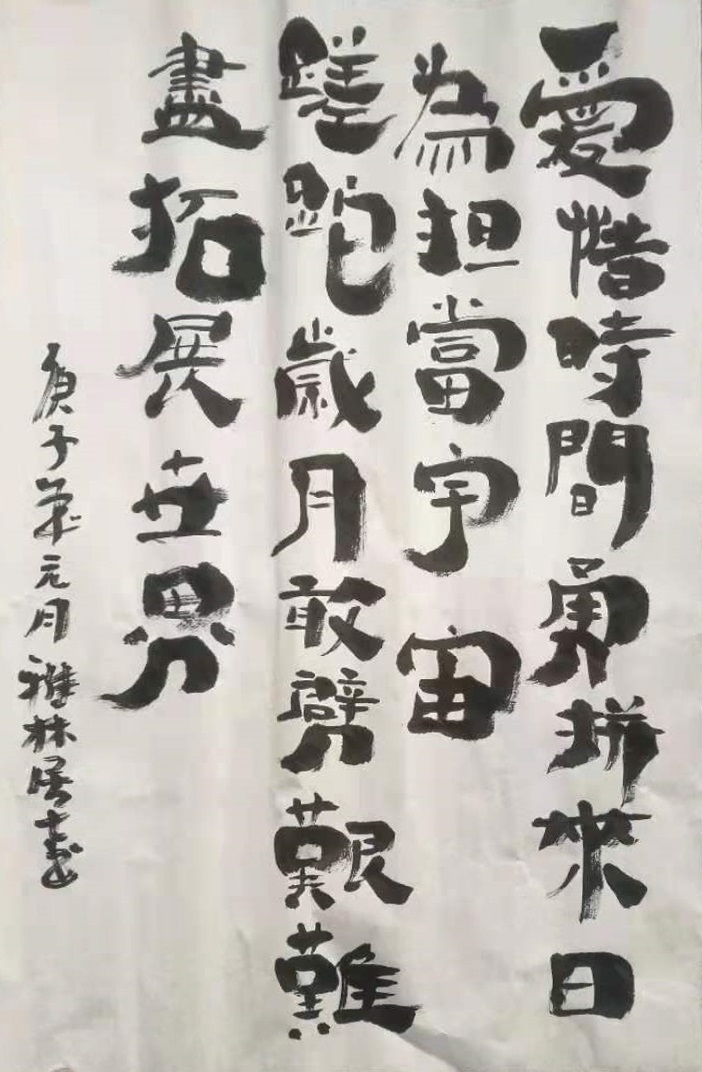 愛惜時間勇拼來日
為担當宇宙
蹉跎歲月敢劈艱難
盡拓展世界
庚子年元月雅林居書